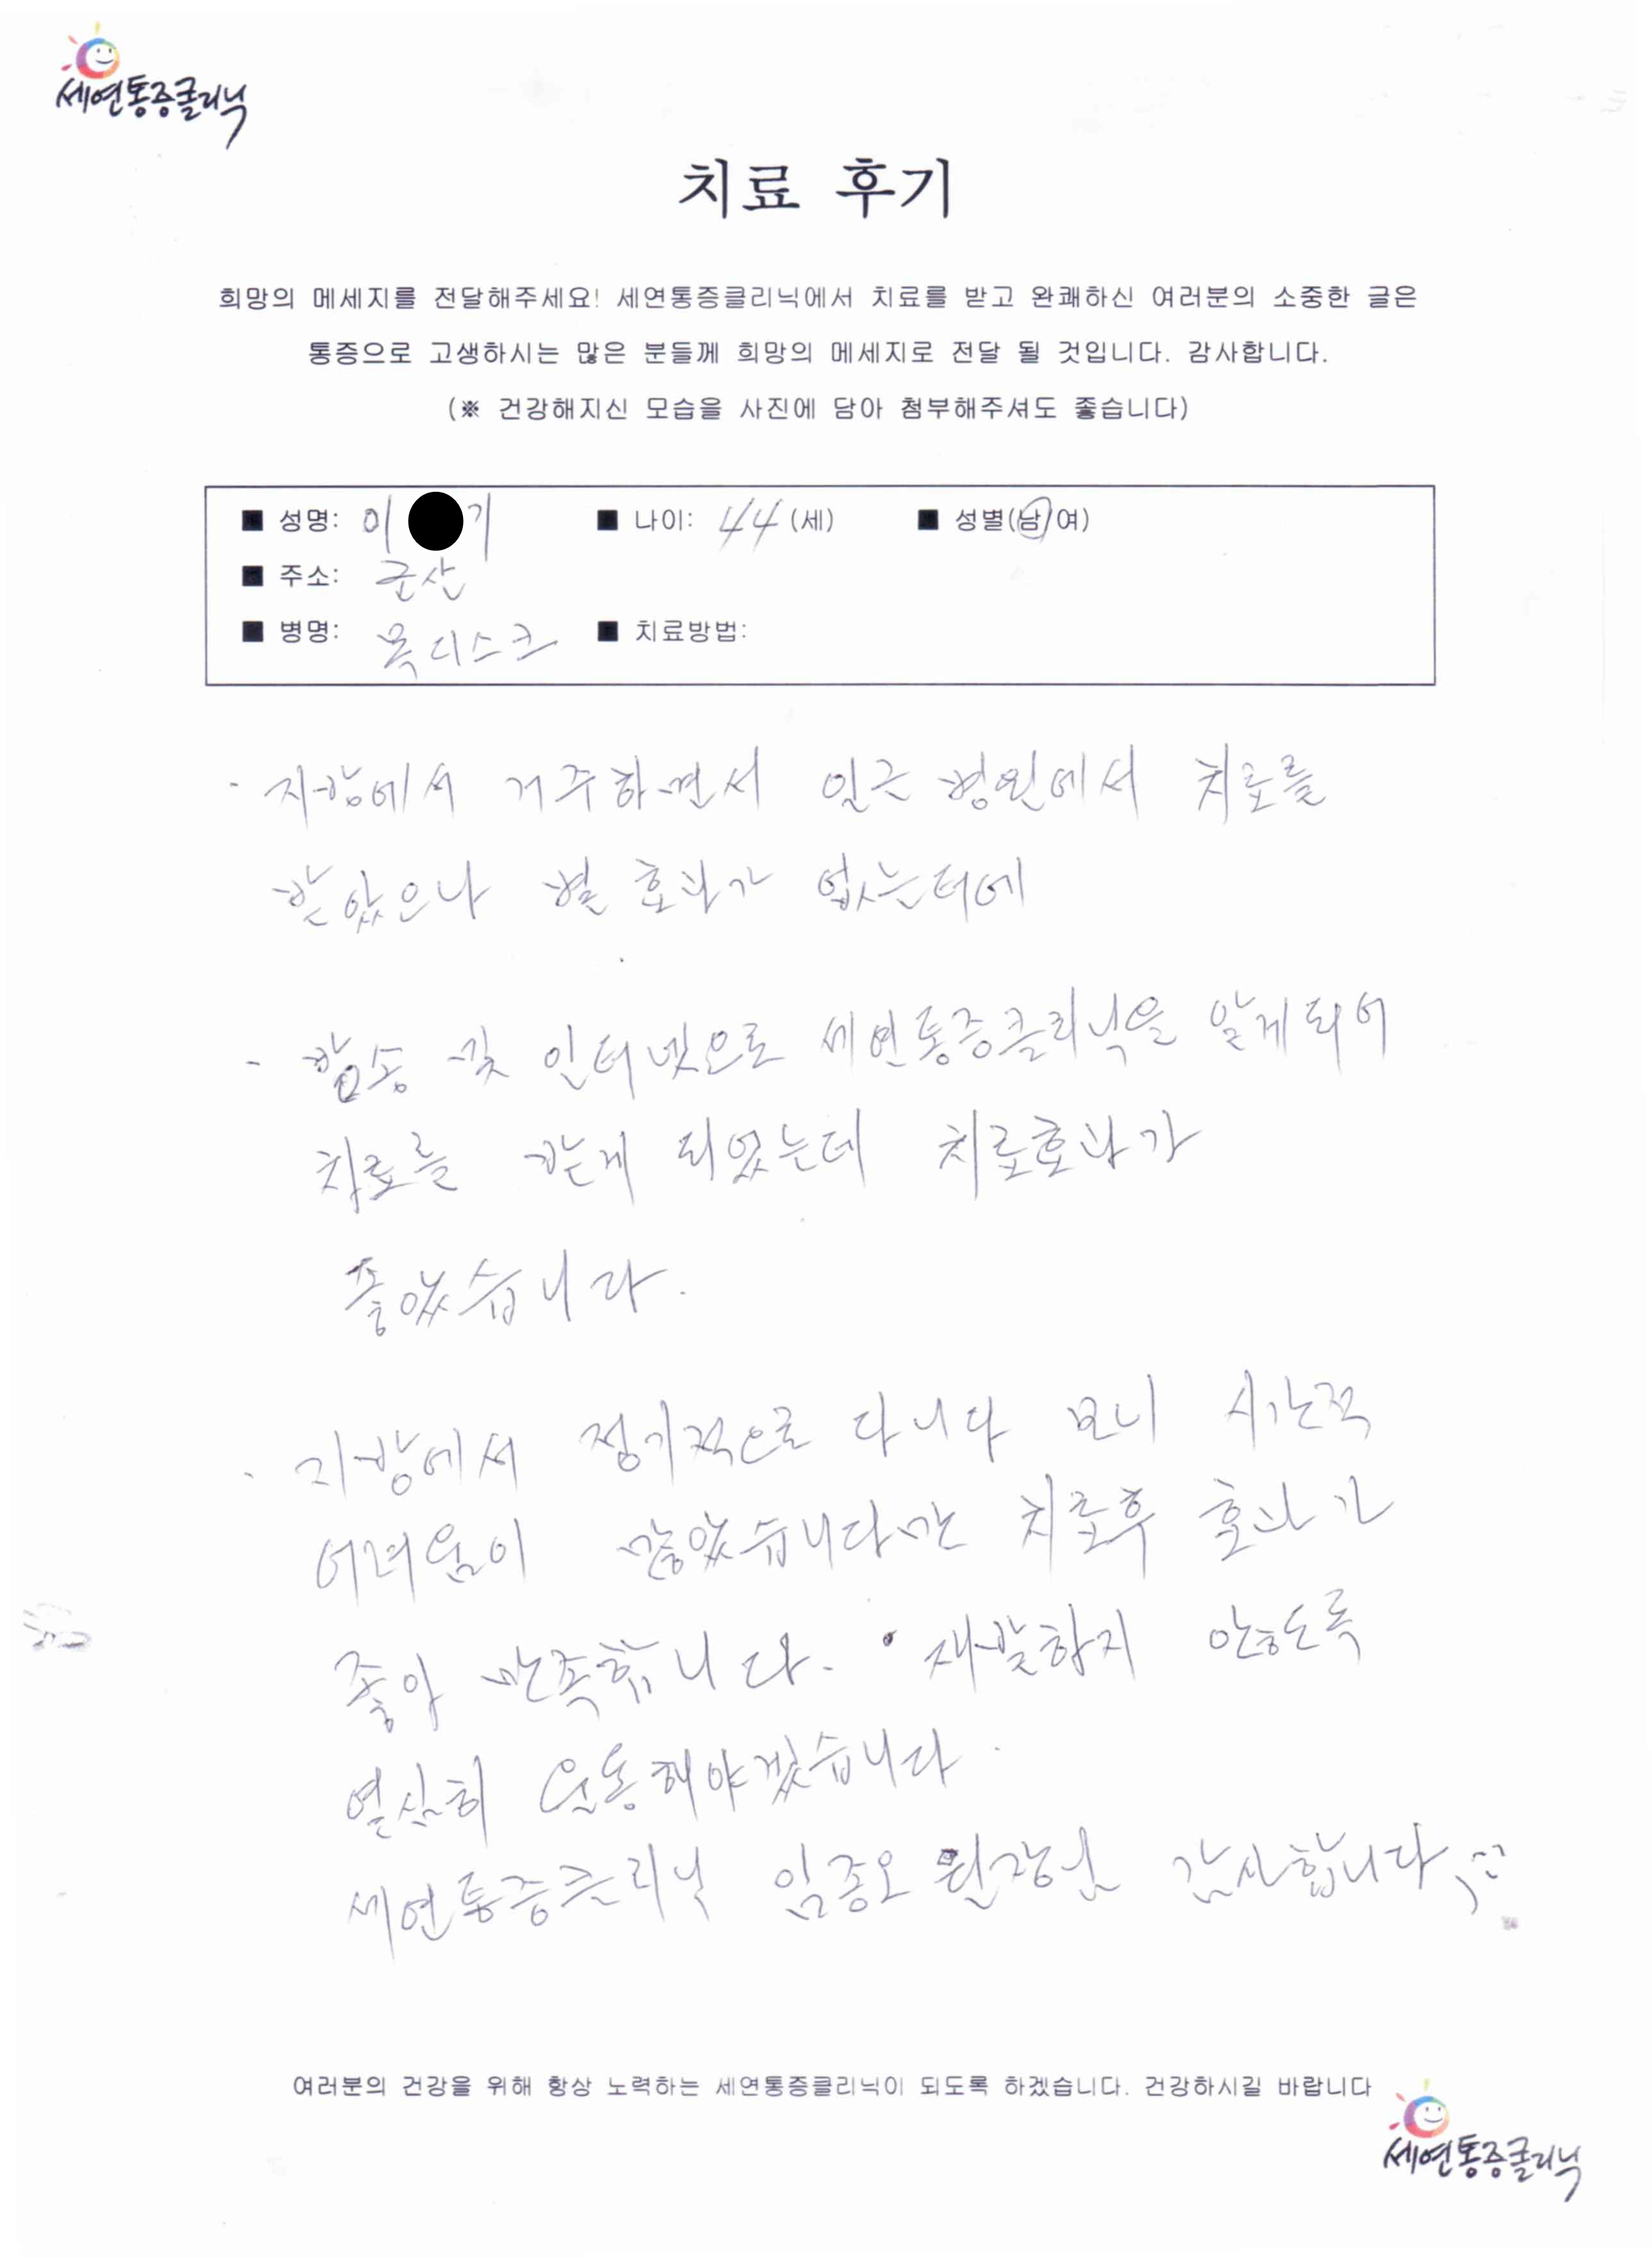 세연통증클리닉
치료 후기
희망의 메세지를 전달해주세요! 세연통증클리닉에서 치료를 받고 완쾌하신 여러분의 소중한 글은
통증으로 고생하시는 많은 분들께 희망의 메세지로 전달 될 것입니다. 감사합니다.
(※ 건강해지신 모습을 사진에 담아 첨부해주셔도 좋습니다)
■ 성명: 이 기 ■ 나이: 44 (세) ■ 성별(남/여)
■ 주소: 군산
■ 병명: 목디스크 ■ 치료방법:
· 지방에서 거주하면서 인근 병원에서 치료를
받았으나 별 효과가 없는터에
- 방송 및 인터넷으로 세연통증클리닉을 알게되어
치료를 받게 되었는데 치료효과가
좋았습니다.
· 지방에서 정기적으로 다니다 보니 시간적
어려움이 많았습니다만 치료후 효과가
좋아 만족합니다. 재발하지 안하도록
열심히 운동해야겠습니다.
세연통증클리닉 임종오 원장님 감사합니다
여러분의 건강을 위해 항상 노력하는 세연통증클리닉이 되도록 하겠습니다. 건강하시길 바랍니다
세연통증클리닉